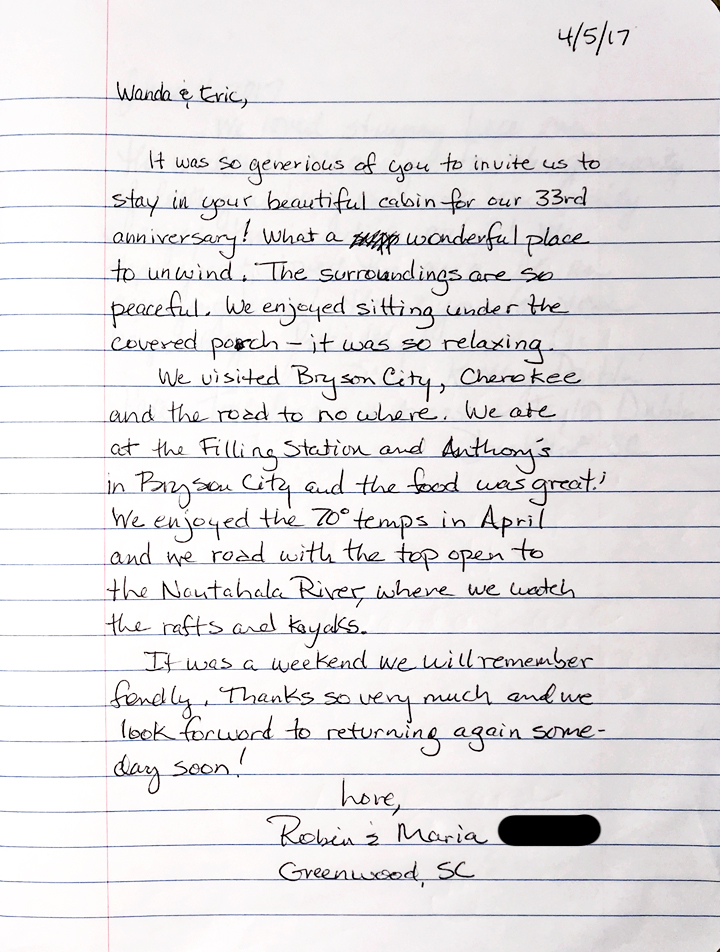 4/5/17
Wanda & Eric,
It was so generious of you to invite us to
stay in your beautiful cabin for our 33rd
anniversary! What a wonderful place
to unwind. The surroundings are so
peaceful. We enjoyed sitting under the
covered porch - it was so relaxing.
We visited Bryson City, Cherokee
and the road to no where. We ate
at the Filling Station and Anthony's
in Bryson City and the food was great!
We enjoyed the 70° temps in April
and we road with the top open to
the Nantahala River, where we watch
the rafts and kayaks.
It was a weekend we will remember
fondly. Thanks so very much and we
look forward to returning again some-
day soon!
Love,
Robin & Maria
Greenwood, SC